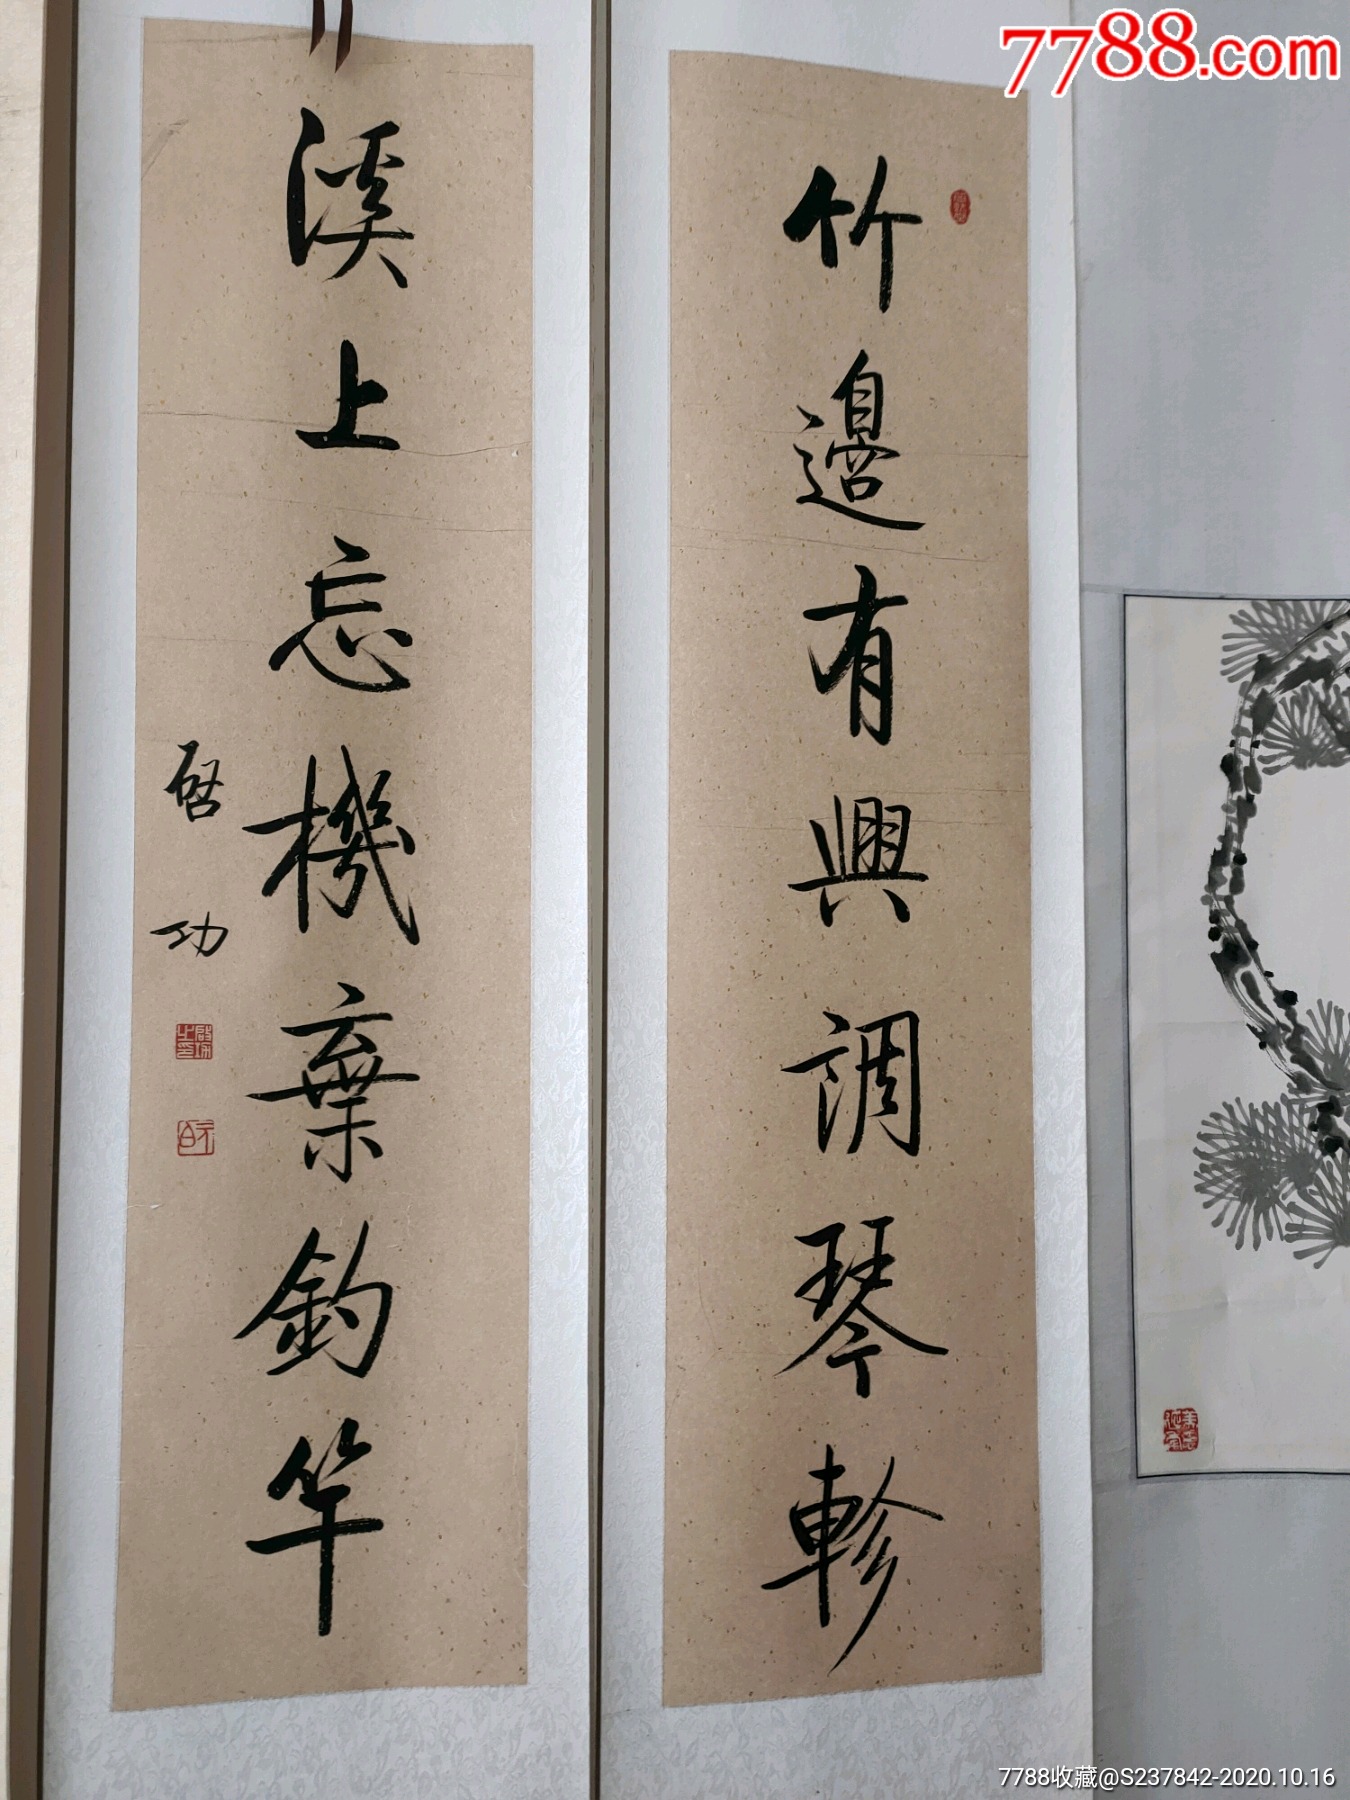 7788.com
竹邊有興調琴軫
溪上忘機棄釣竿
啓功
啟功之印
元白
7788收藏@S237842-2020.10.16